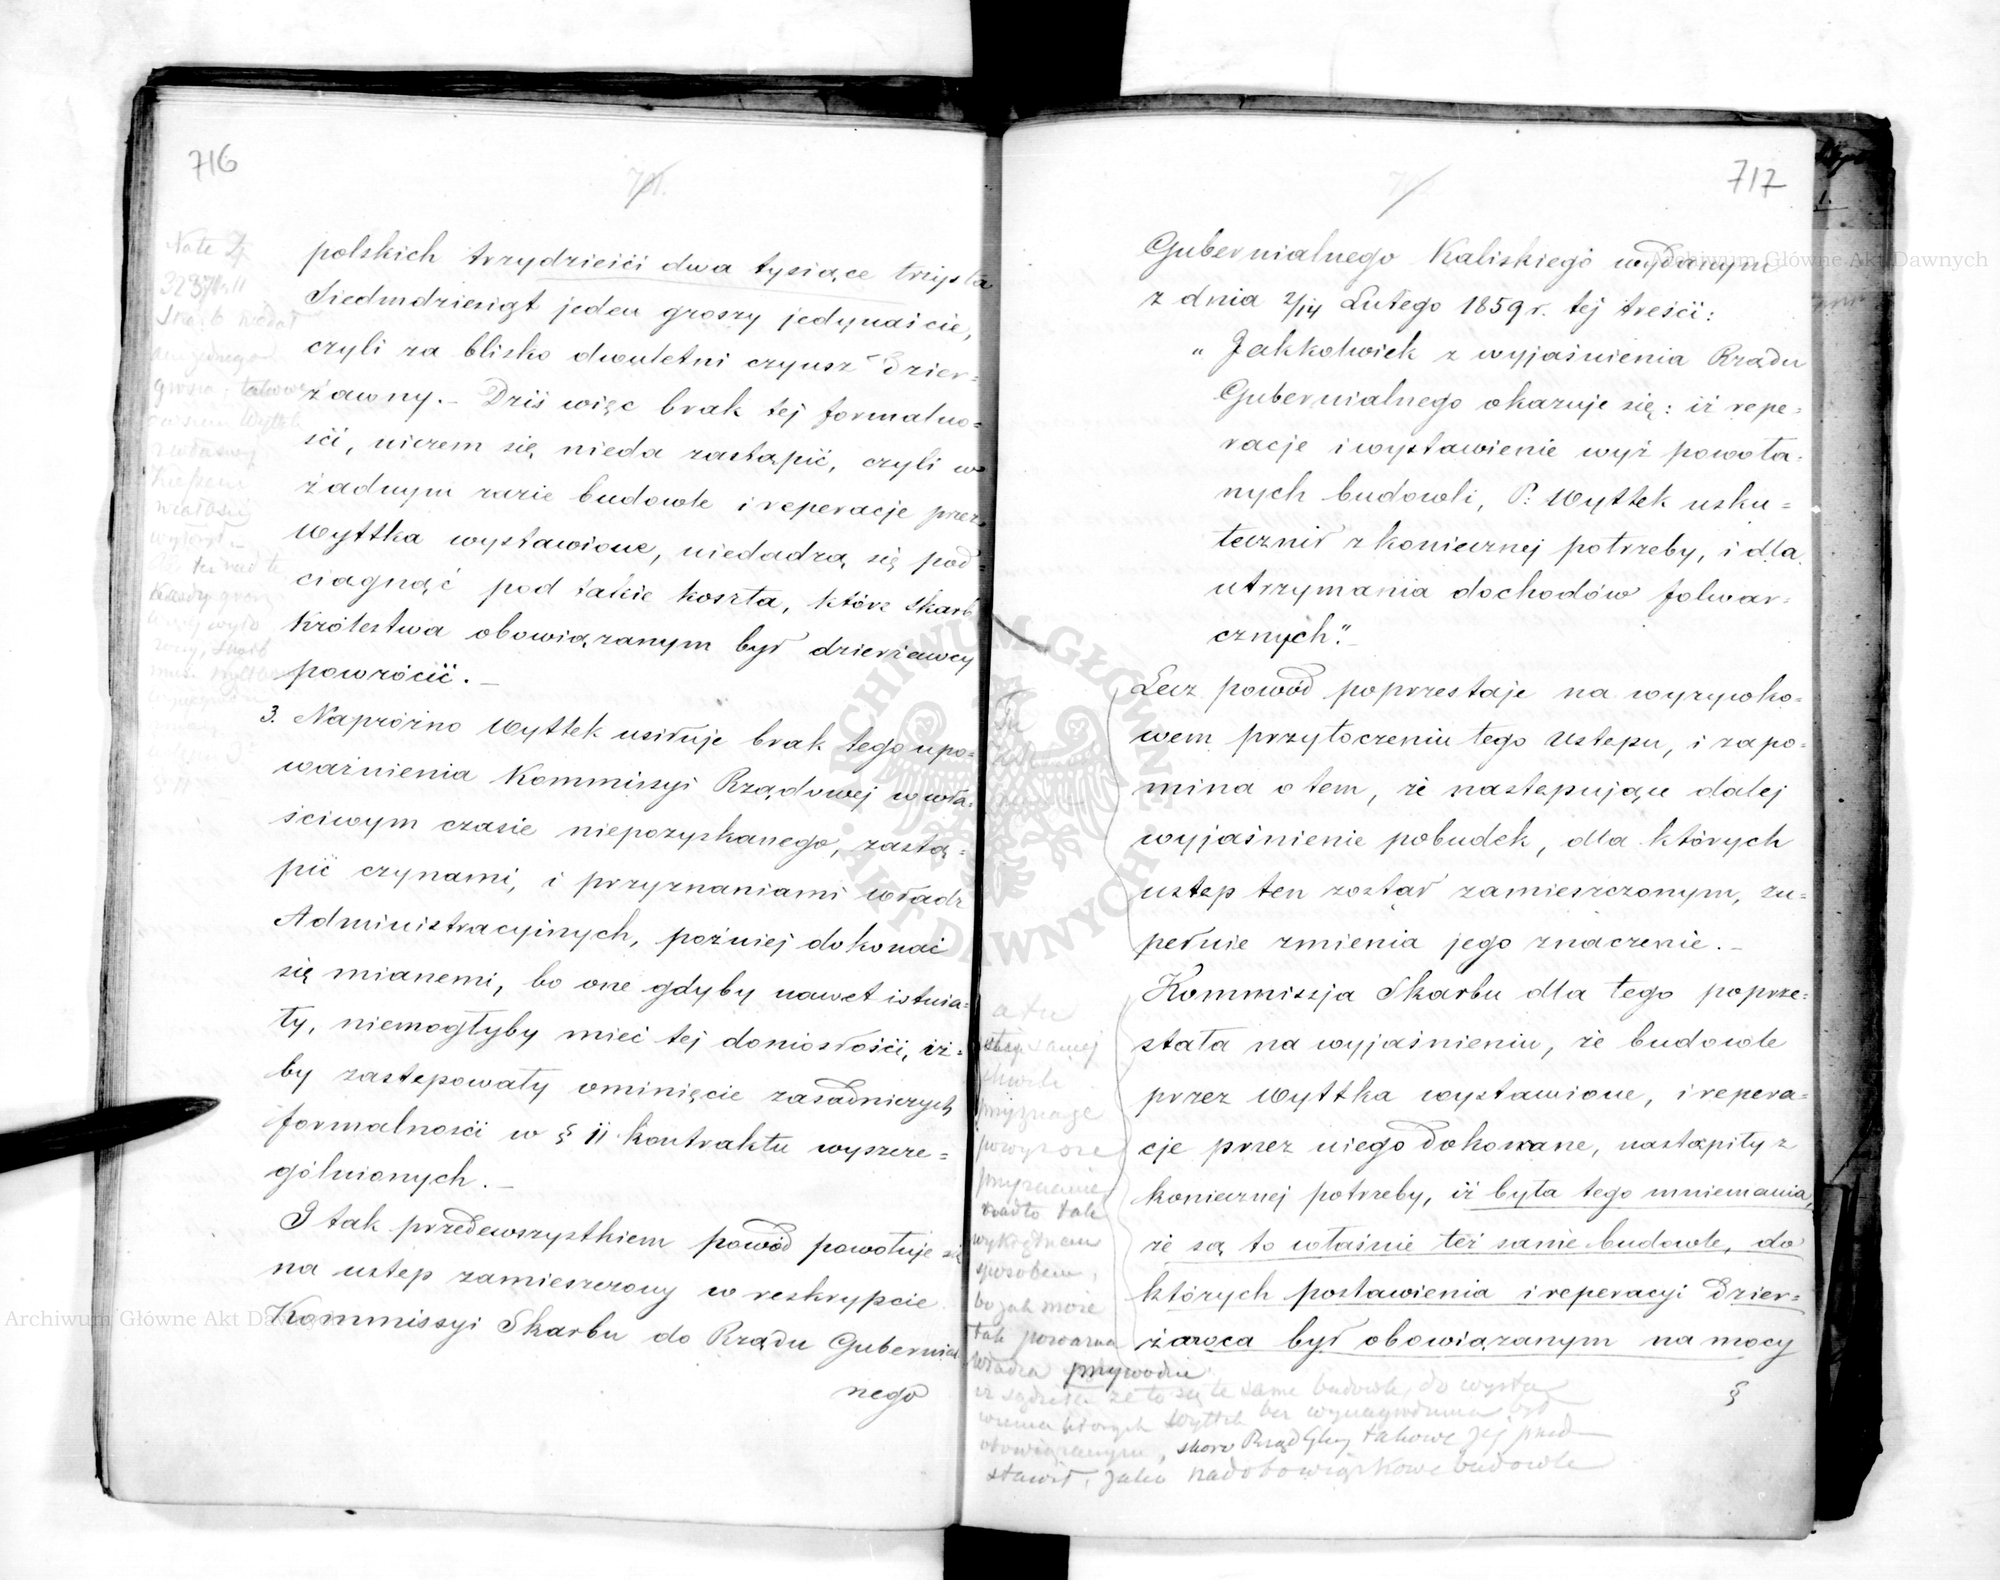 716
polskich trzydzieści dwa tysiące trzysta
Siedmdziesiąt jeden groszy jedynaście,
czyli za blisko dwuletni czynsz dzier=
żawny. – Dziś więc brak tej formalno=
ści, niczem się nieda zastąpić, czyli w
żadnym razie budowle i reperacje przez
Wyttka wystawione, niedadzą się pod=
ciągnąć pod takie koszta, które Skarb
Królestwa obowiązanym był dzierżawcy
powrócić. –
3. Napróżno Wyttek usiłuje brak tego upo=
ważnienia Kommissyi Rządowej w wła=
ściwym czasie niepozyskanego, zastą=
pić czynami, i przyznaniami władz
Administracyjnych, poźniej dokonać
się mianemi, bo one gdyby nawet istnia=
ły, niemogłyby mieć tej doniosłości, iż=
by zastępowały ominięcie zasadniczych
formalności w § 11 kontraktu wyszcze=
gólnionych. –
I tak przedewszystkiem powód powołuje się
na ustęp zamieszczony w reskrypcie
Kommissyi Skarbu do Rządu Gubernial
nego
717
Gubernialnego Kaliskiego wydanym
z dnia 2/14 Lutego 1859 r. tej treści:
„ Jakkolwiek z wyjaśnienia Rządu
Gubernialnego okazuje się: iż repe=
racje i wystawienie wyż powoła=
nych budowli, P. Wyttek usku=
tecznił z koniecznej potrzeby, i dla
utrzymania dochodów folwar=
cznych". –
Lecz powód poprzestaje na wyrywko=
wem przytoczeniu tego Ustępu, i zapo=
mina o tem, że następujące dalej
wyjaśnienie pobudek, dla których
ustęp ten został zamieszczonym, zu=
pełnie zmienia jego znaczenie. –
Kommissja Skarbu dla tego poprze=
stała na wyjaśnieniu, że budowle
przez Wyttka wystawione, i repera=
cje przez niego dokonane, nastąpiły z
koniecznej potrzeby, iż była tego mniemania,
że są to właśnie też same budowle, do
których postawienia i reperacyi Dzier=
żawca był obowiązanym na mocy
§
a tu
samej
chwili
przyznaje
powyższe
sposobem,
bo jak może
tak poważna
władza przywodzić
iż sądziła że to są te same budowle, do wysta
wienia których Wyttek bez wynagrodzenia był
obowiązanym, skoro Rząd Gby takowe jej przed
stawił, jako nadobowiązkowe budowle
Archiwum Główne Akt Dawnych
Archiwum Główne Akt Dawnych
ARCHIWUM GŁÓWNE AKT DAWNYCH